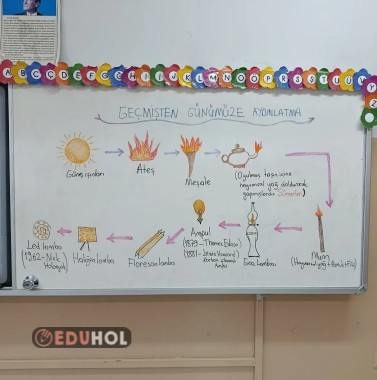 A B C Ç D E F G Ğ H I İ J K L M N O Ö P R S Ş T U Ü V Y Z
GEÇMİŞTEN GÜNÜMÜZE AYDINLATMA
Güneş ışınları
Ateş
Meşale
(Oyulmuş taşın içine
hayvansal yağ doldurarak
yapmışlardır Sümerler)
Mum
Gaz Lambası
Ampul
(1879 - Thomas Edison)
Floresan lamba
Halojen lamba
Led lamba
(1962 - Nick
Holonyak)
EDUHOL